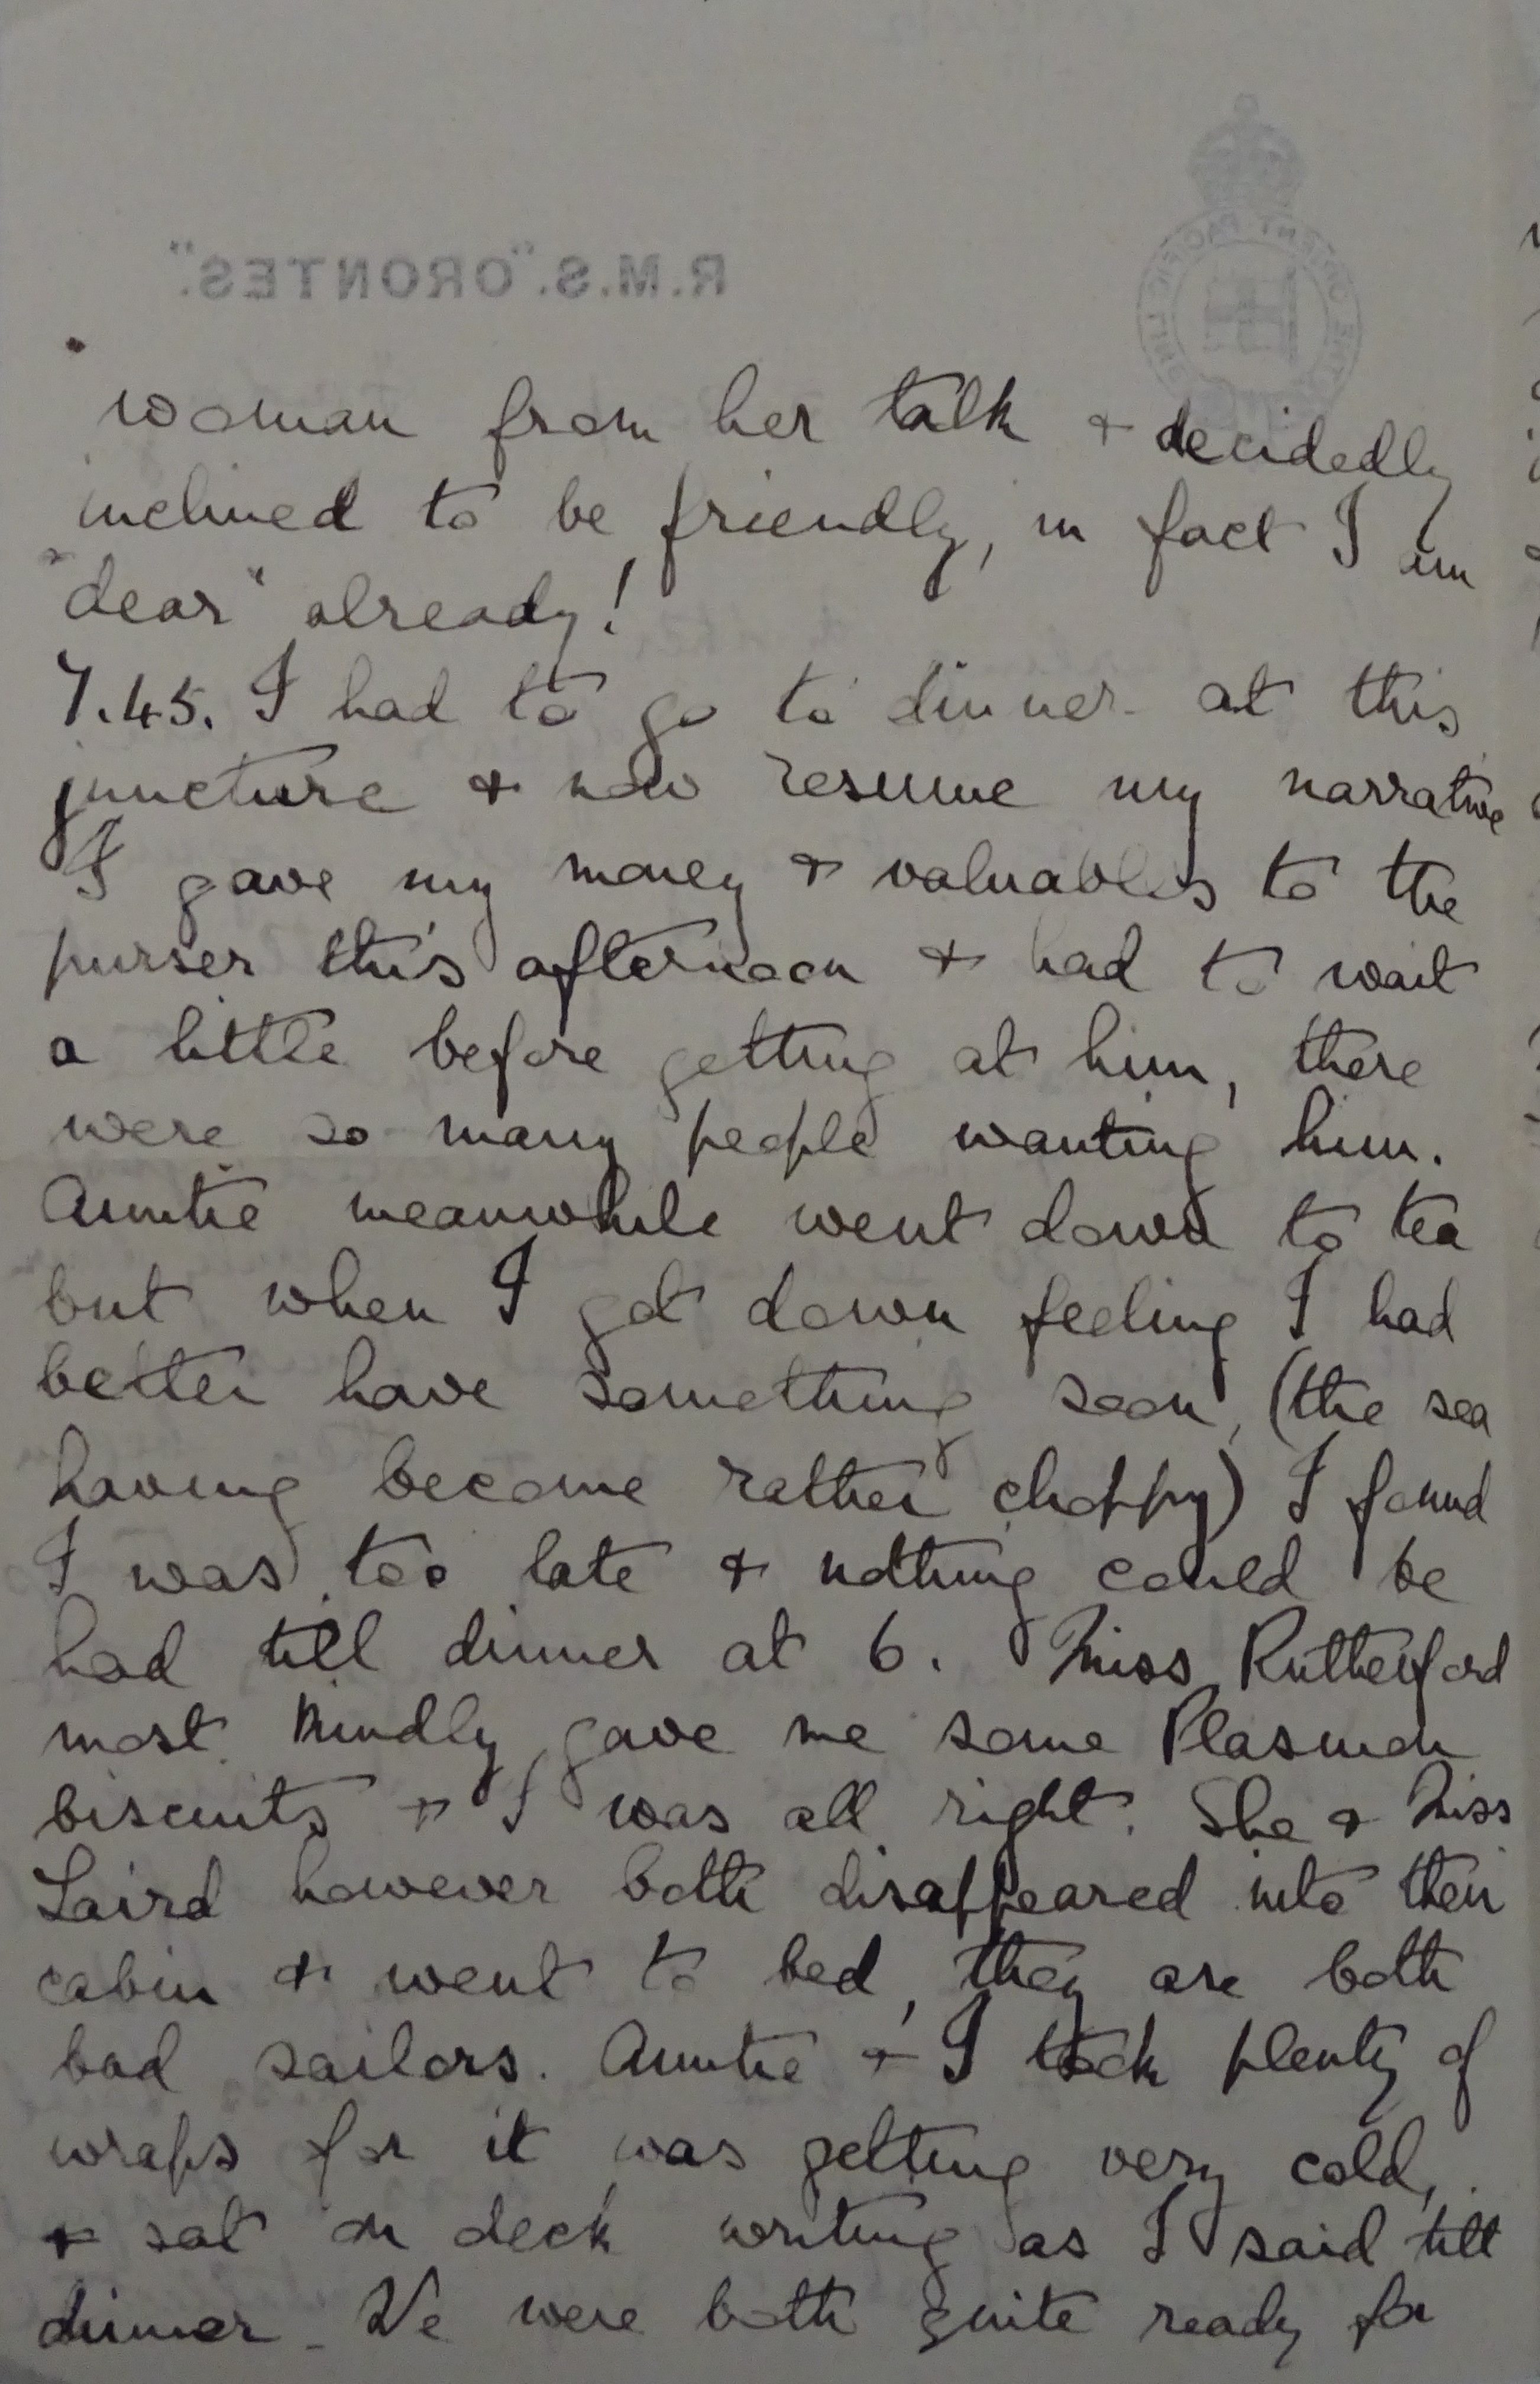 R.M.S. "ORONTES".
ORIENT PACIFIC LINE
woman from her talk & decidedly
inclined to be friendly, in fact I am
"dear" already!
7.45. I had to go to dinner at this
juncture & now resume my narrative
I gave my money & valuables to the
purser this afternoon & had to wait
a little before getting at him, there
were so many people wanting him.
Auntie meanwhile went down to tea
but when I got down feeling I had
better have something soon, (the sea
having become rather choppy) I found
I was too late & nothing could be
had till dinner at 6. Miss Rutherford
most kindly gave me some Plasmon
biscuits & I was all right. She & Miss
Laird however both disappeared into their
cabin & went to bed, they are both
bad sailors. Auntie & I took plenty of
wraps for it was getting very cold,
& sat on deck writing as I said till
dinner - We were both quite ready for